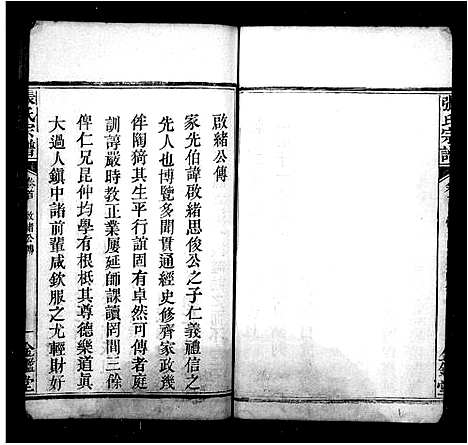 張氏宗譜
金鑑堂
啟緒公傳
家先伯諱啟緒思俊公之子仁義禮信之
先人也博覽多聞貫通經史修齊家政幾
侔陶猗其生平行誼固有卓然可傳者庭
訓諄嚴時教正業屢延師課讀罔間三餘
俾仁兄昆仲均學有根柢其尊德樂道眞
大過人鎭中諸前輩咸欽服之尤輕財好
張氏宗譜
卷首
啟緒公傳
一
金鑑堂